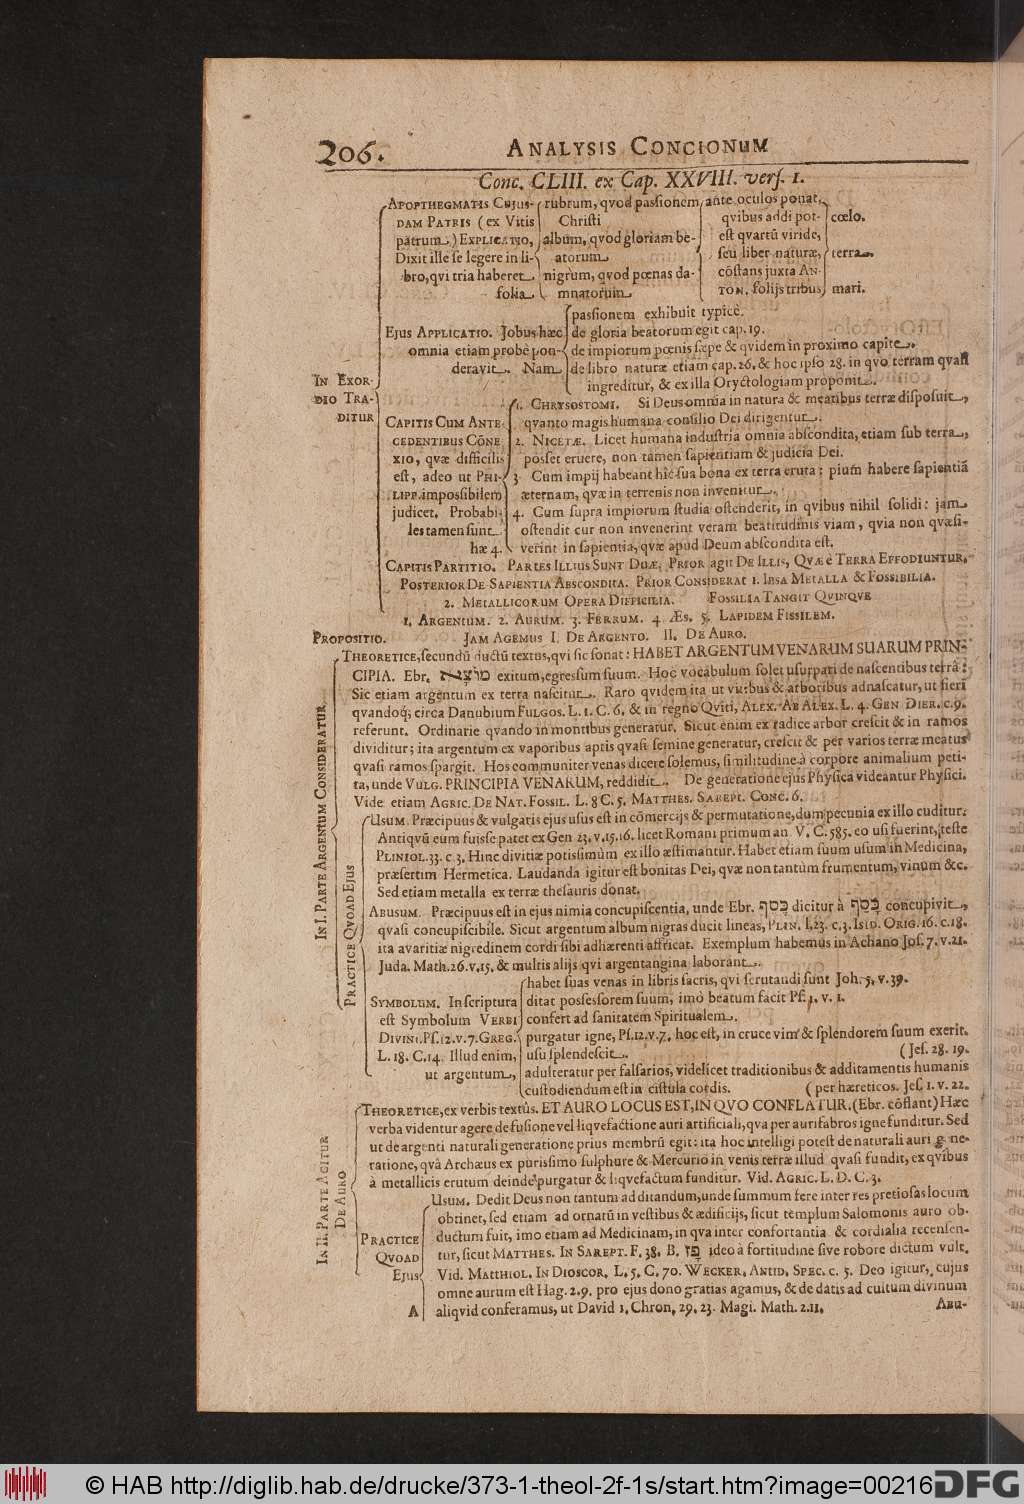 206. ANALYSIS CONCIONUM
Conc. CLIII. ex Cap. XXVIII. vers. 1.
APOPTHEGMATIS CUJUS- rubrum, qvod passionem ante oculos ponat,
DAM PATRIS (ex Vitis Christi qvibus addi pot- cœlo.
patrum.) EXPLICATIO, album, qvod gloriam be- est qvartũ viride,
Dixit ille se legere in li- atorum seu liber naturæ, terra.
bro, qvi tria haberet nigrum, qvod pœnas da- cõstans juxta AN-
folia mnatorum TON. folijs tribus mari.
passionem exhibuit typicè.
EJUS APPLICATIO. Jobus hæc de gloria beatorum egit cap. 19.
omnia etiam probè pon- de impiorum pœnis sæpe & qvidem in proximo capite.
deravit. Nam de libro naturæ etiam cap. 26. & hoc ipso 28. in qvo terram qvasi
IN EXOR- ingreditur, & ex illa Oryctologiam proponit.
DIO TRA- 1. CHRYSOSTOMI. Si Deus omnia in natura & meatibus terræ disposuit,
DITUR CAPITIS CUM ANTE- qvanto magis humana consilio Dei dirigentur.
CEDENTIBUS CÕNE- 2. NICETÆ. Licet humana industria omnia abscondita, etiam sub terra,
XIO, qvæ difficilis posset eruere, non tamen sapientiam & judicia Dei.
est, adeo ut PHI- 3. Cum impij habeant hîc sua bona ex terra eruta: pium habere sapientiã
LIPP. impossibilem æternam, qvæ in terrenis non invenitur.
judicet. Probabi- 4. Cum supra impiorum studia ostenderit, in qvibus nihil solidi: jam
les tamen sunt ostendit cur non invenerint veram beatitudinis viam, qvia non qvæsi-
hæ 4. verint in sapientia, qvæ apud Deum abscondita est.
CAPITIS PARTITIO. PARTES ILLIUS SUNT DUÆ, PRIOR agit DE ILLIS, QVÆ è TERRA EFFODIUNTUR,
POSTERIOR DE SAPIENTIA ABSCONDITA. PRIOR CONSIDERAT 1. IPSA METALLA & FOSSIBILIA.
2. METALLICORUM OPERA DIFFICILIA. FOSSILIA TANGIT QVINQVE
1. ARGENTUM. 2. AURUM. 3. FERRUM. 4. ÆS. 5. LAPIDEM FISSILEM.
PROPOSITIO. JAM AGEMUS I. DE ARGENTO. II. DE AURO.
IN I. PARTE ARGENTUM CONSIDERATUR
THEORETICE, secundũ ductũ textus, qvi sic sonat: HABET ARGENTUM VENARUM SUARUM PRIN-
CIPIA. Ebr. מוצא exitum, egressum suum. Hoc vocabulum solet usurpari de nascentibus terrâ:
Sic etiam argentum ex terra nascitur. Raro qvidem ita ut vitibus & arboribus adnascatur, ut fieri
qvandoq; circa Danubium FULGOS. L. 1. C. 6. & in regno Qviti, ALEX. AB ALEX. L. 4. GEN DIER. c. 9.
referunt. Ordinarie qvando in montibus generatur. Sicut enim ex radice arbor crescit & in ramos
dividitur; ita argentum ex vaporibus aptis qvasi semine generatur, crescit & per varios terræ meatus
qvasi ramos spargit. Hos communiter venas dicere solemus, similitudine à corpore animalium peti-
ta, unde VULG. PRINCIPIA VENARUM, reddidit. De generatione ejus Physica videantur Physici.
Vide etiam AGRIC. DE NAT. FOSSIL. L. 8 C. 5. MATTHES. SAREPT. CONC. 6.
PRACTICE QVOAD EJUS
USUM. Præcipuus & vulgaris ejus usus est in cõmercijs & permutatione, dum pecunia ex illo cuditur:
Antiqvũ eum fuisse patet ex Gen 23. v. 15. 16. licet Romani primum an. V. C. 585. eo usi fuerint, teste
PLINIO L. 33. c 3. Hinc divitiæ potissimùm ex illo æstimantur. Habet etiam suum usum in Medicina,
præsertim Hermetica. Laudanda igitur est bonitas Dei, qvæ non tantùm frumentum, vinum &c.
Sed etiam metalla ex terræ thesauris donat.
ABUSUM. Præcipuus est in ejus nimia concupiscentia, unde Ebr. כסף dicitur à כסף concupivit,
qvasi concupiscibile. Sicut argentum album nigras ducit lineas, PLIN. l. 23. c. 3. ISID. ORIG. 16. c. 18.
ita avaritiæ nigredinem cordi sibi adhærenti affricat. Exemplum habemus in Achano Jos. 7. v. 21.
Juda. Math. 26. v. 15. & multis alijs qvi argentangina laborant.
habet suas venas in libris sacris, qvi scrutandi sunt Joh. 5. v. 39.
SYMBOLUM. In scriptura ditat possessorem suum, imò beatum facit Ps. 1. v. 1.
est Symbolum VERBI confert ad sanitatem Spiritualem.
DIVINI. Ps. 12. v. 7. GREG. purgatur igne, Ps. 12. v. 7. hoc est, in cruce vim & splendorem suum exerit.
L. 18. C. 14. Illud enim, usu splendescit. (Jes. 28. 19.
ut argentum, adulteratur per falsarios, videlicet traditionibus & additamentis humanis
custodiendum est in cistula cordis. (per hæreticos. Jes. 1. v. 22.
IN II. PARTE AGITUR DE AURO
THEORETICE, ex verbis textûs. ET AURO LOCUS EST, IN QVO CONFLATUR. (Ebr. cõflant) Hæc
verba videntur agere de fusione vel liqvefactione auri artificiali, qva per aurifabros igne funditur. Sed
ut de argenti naturali generatione prius membrũ egit: ita hoc intelligi potest de naturali auri gene-
ratione, qvâ Archæus ex purissimo sulphure & Mercurio in venis terræ illud qvasi fundit, ex qvibus
à metallicis erutum deinde purgatur & liqvefactum funditur. Vid. AGRIC. L. D. C. 3.
USUM. Dedit Deus non tantum ad ditandum, unde summum fere inter res pretiosas locum
obtinet, sed etiam ad ornatũ in vestibus & ædificijs, sicut templum Salomonis auro ob-
PRACTICE ductum fuit, imo etiam ad Medicinam, in qva inter confortantia & cordialia recensen-
QVOAD tur, sicut MATTHES. IN SAREPT. F. 38. B. פז ideò à fortitudine sive robore dictum vult.
EJUS Vid. MATTHIOL. IN DIOSCOR. L. 5. C. 70. WECKER. ANTID. SPEC. c. 5. Deo igitur, cujus
omne aurum est Hag. 2. 9. pro ejus dono gratias agamus, & de datis ad cultum divinum
A aliqvid conferamus, ut David 1. Chron. 29. 23. Magi. Math. 2. 11. ABU-
© HAB http://diglib.hab.de/drucke/373-1-theol-2f-1s/start.htm?image=00216
DFG